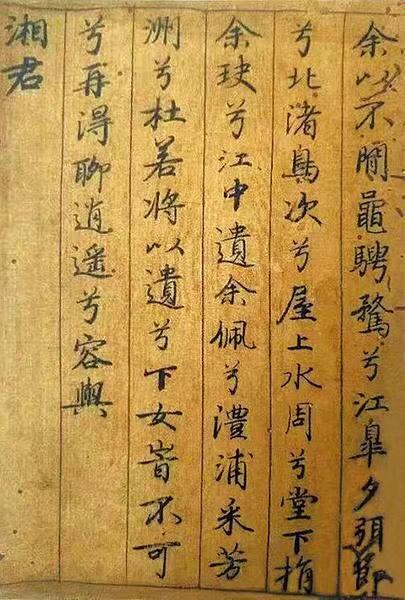 余以不閒鼂騁騖兮江皋夕弭節
兮北渚鳥次兮屋上水周兮堂下捐
余玦兮江中遺余佩兮澧浦采芳
洲兮杜若將以遺兮下女旹不可
兮再得聊逍遥兮容與
湘君